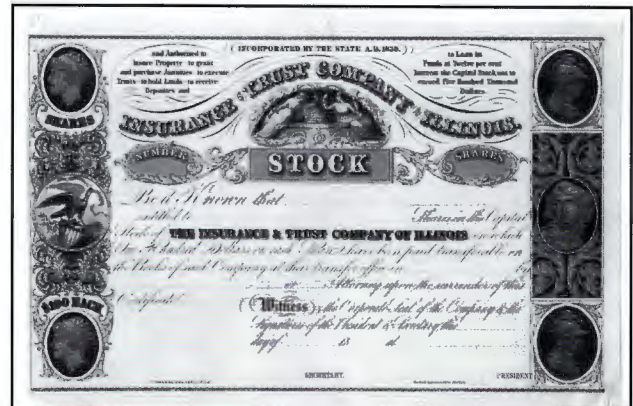 ( INCORPORATED BY THE STATE A.D. 1839. )
and Authorized to
insure Property to grant
and purchase Annuities to execute
Trusts to hold Lands to receive
Deposites and
to Loan its
Funds at Twelve per cent
Interest the Capital Stock not to
exceed Five Hundred Thousand
Dollars.
INSURANCE & TRUST COMPANY OF ILLINOIS.
SHARES
NUMBER
STOCK
SHARES
Be it Known that
entitled to Shares in the Capital
Stock of THE INSURANCE & TRUST COMPANY OF ILLINOIS on which
One Hundred Dollars on each Share have been paid transferable on
the Books of said Company at their transfer office in by
or Attorney upon the surrender of this
Certificate.
$100 EACH
(Witness) the Corporate Seal of the Company & the
Signatures of the President & Secretary this
day of 18 at
SECRETARY.
PRESIDENT